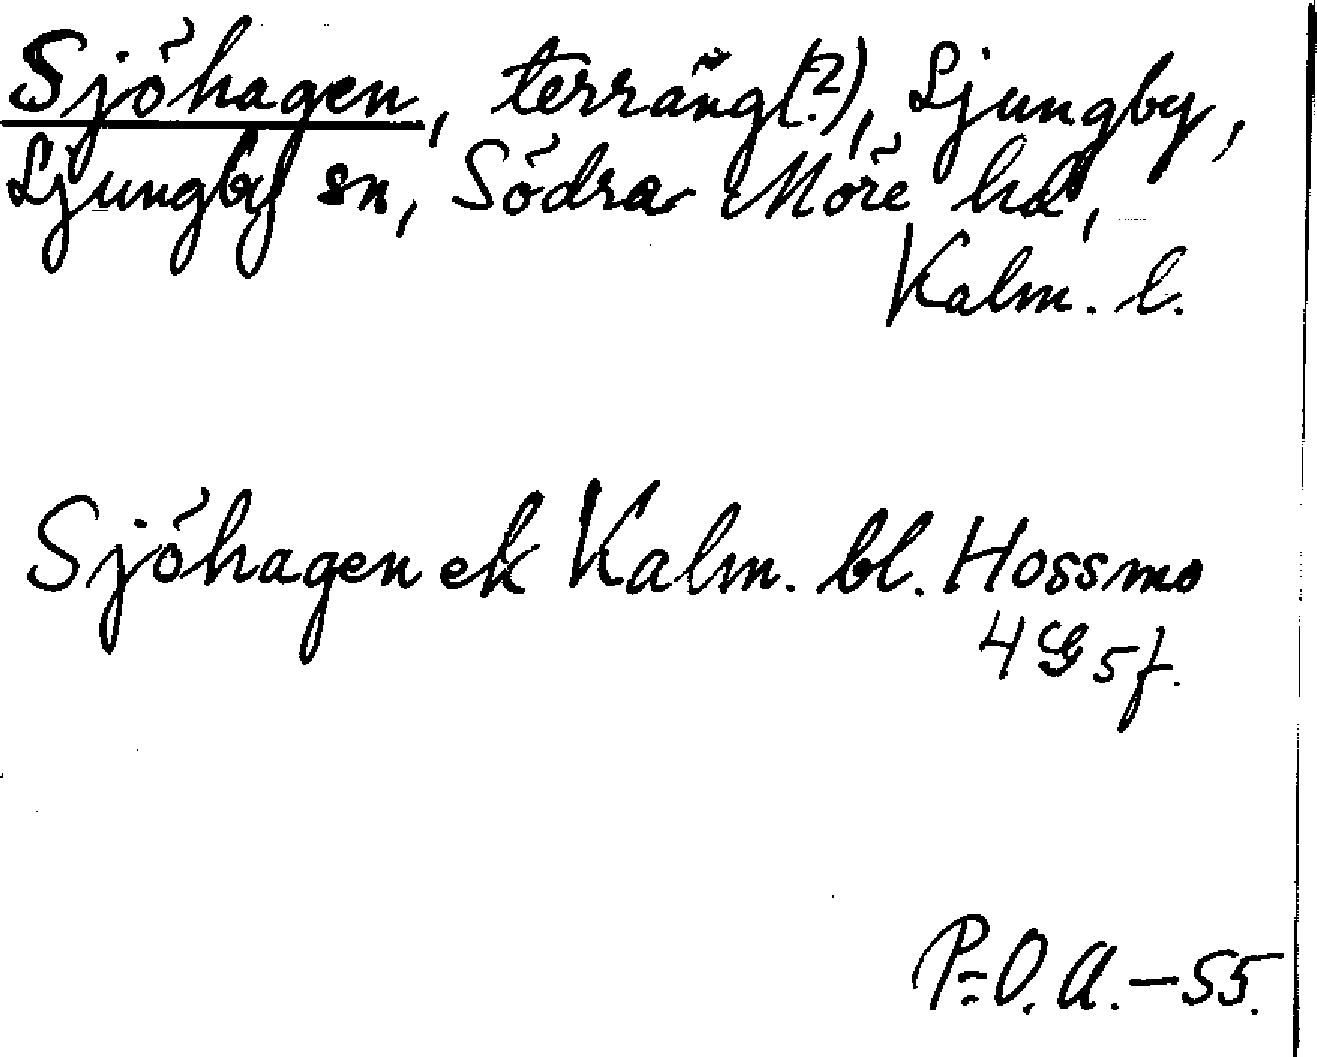 Sjöhagen, terräng(?), Ljungby,
Ljungby sn, Södra Möre hd,
Kalm. l.
Sjöhagen ek Kalm. bl. Hossmo
4G5f.
P-O.A.-55.